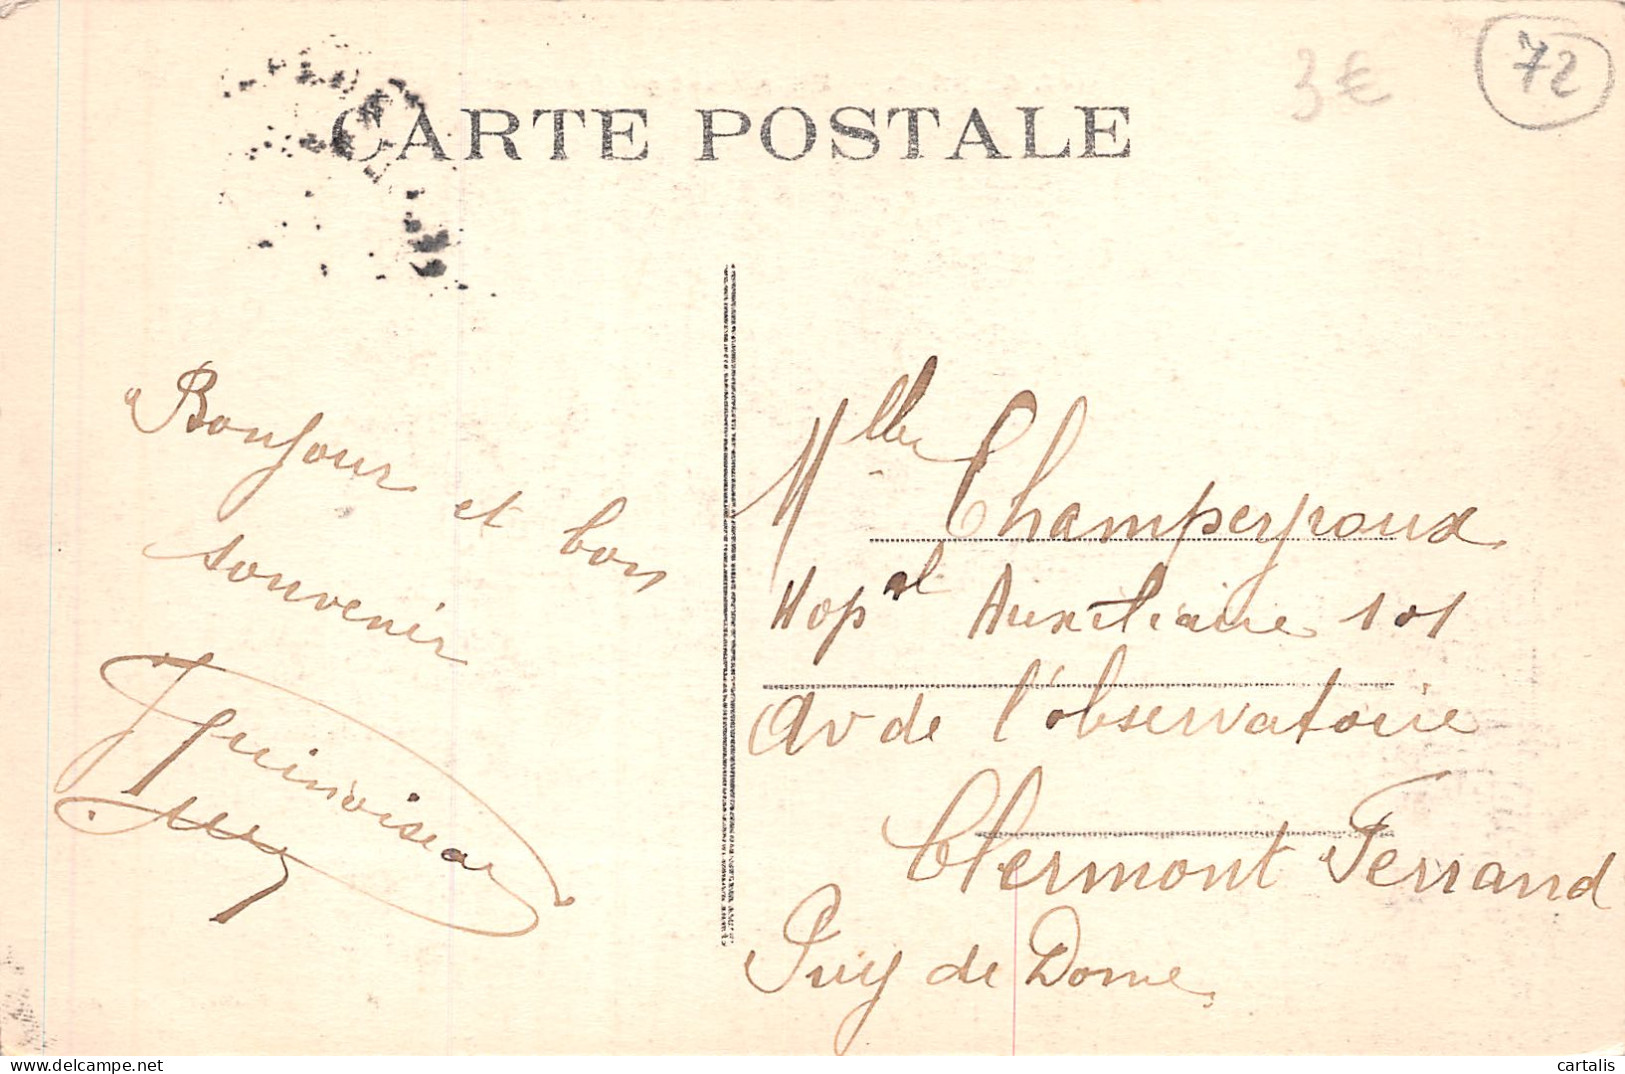 72
3€
CARTE POSTALE
Bonjour et bon
souvenir
Melle Champeyroux
Hopal Auxiliaire 101
Av de l'observatoire
Clermont Ferrand
Puy de Dome
cartalis